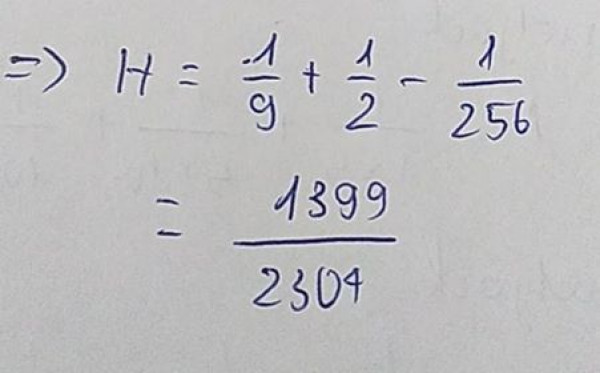 => H = 1/9 + 1/2 - 1/256
= 1399/2304